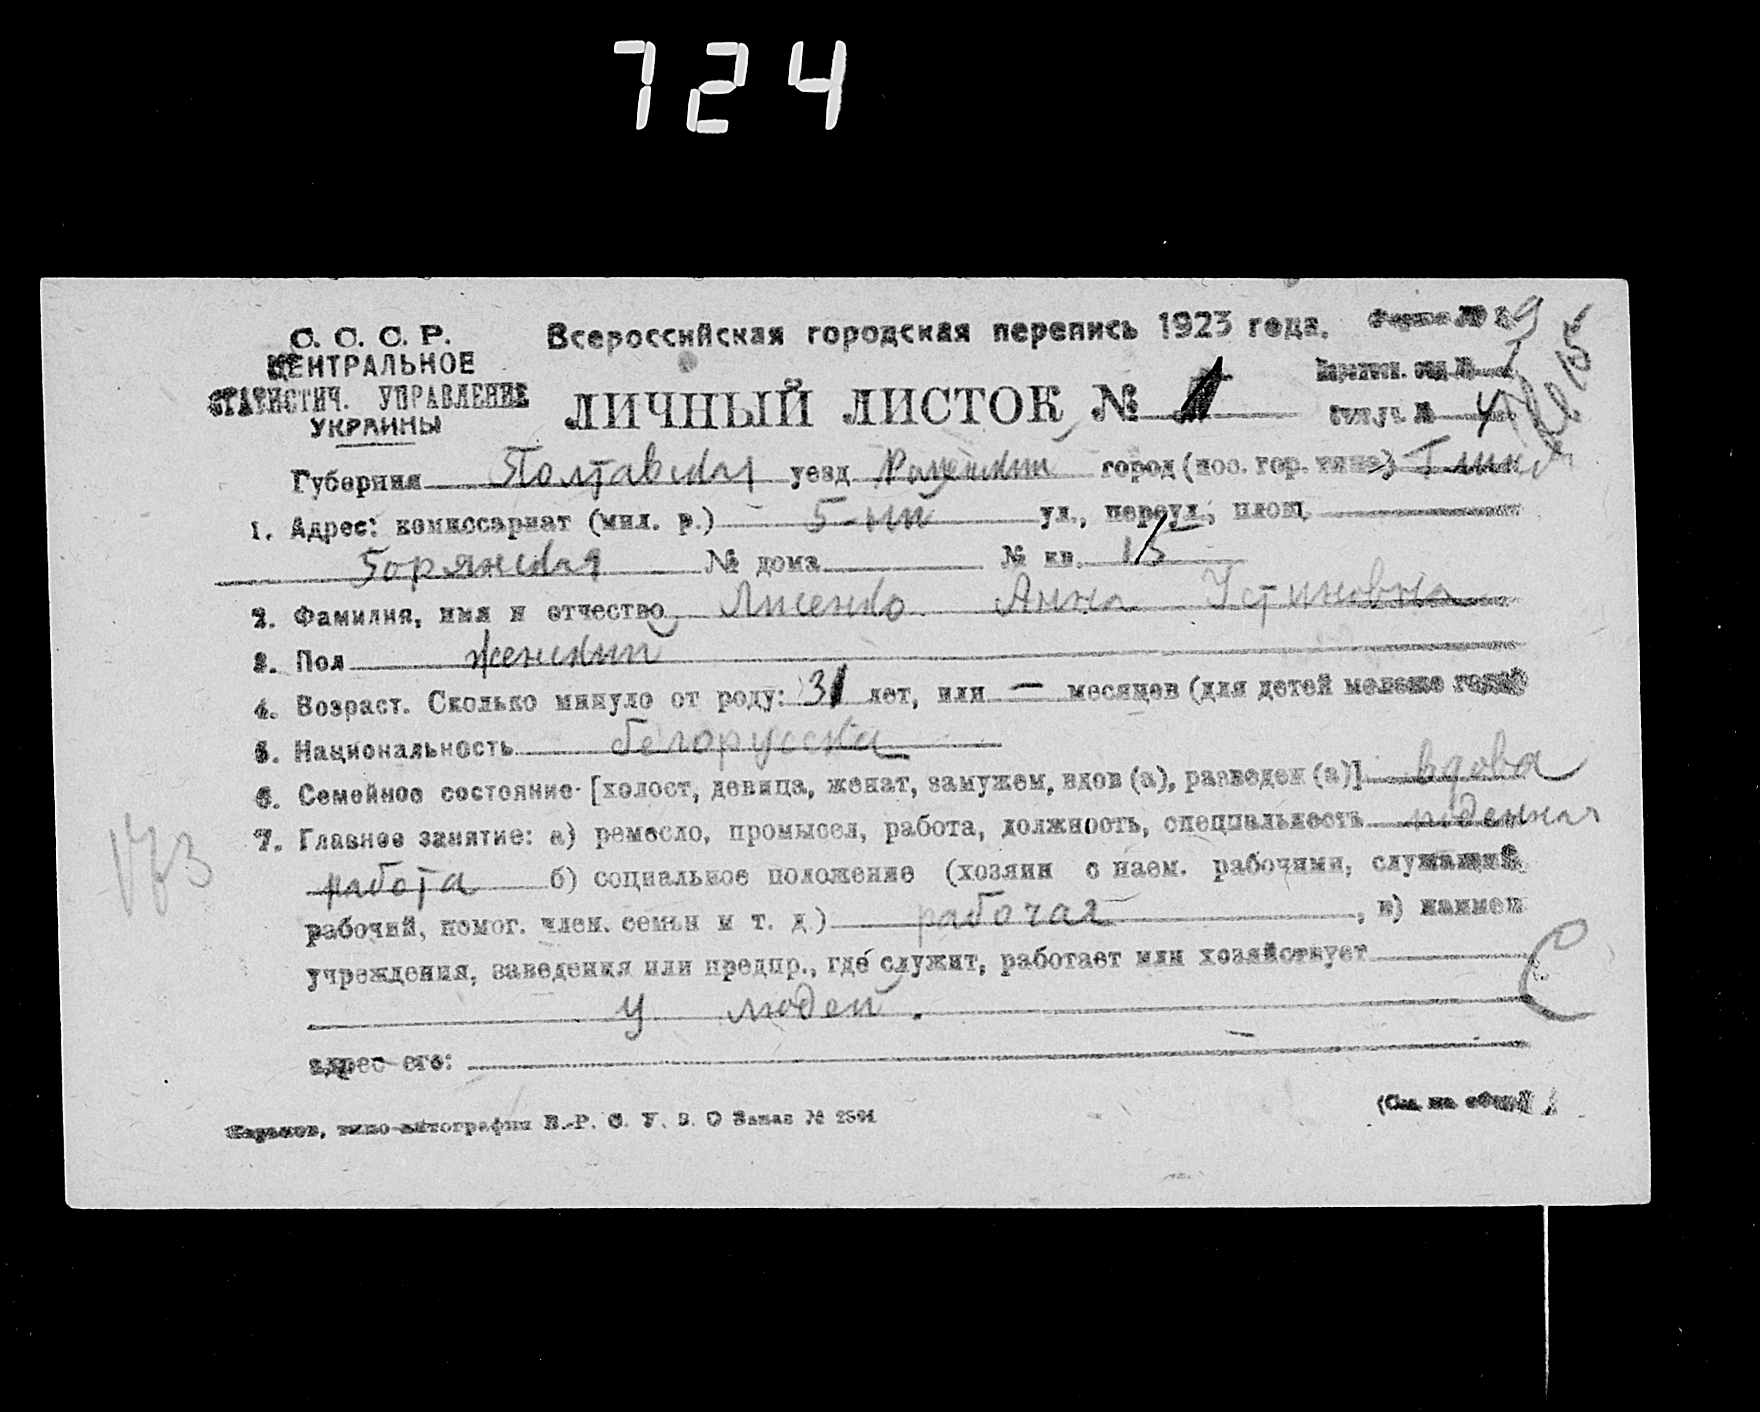 724
С. С. С. Р.
ЦЕНТРАЛЬНОЕ
СТАТИСТИЧ. УПРАВЛЕНИЕ
УКРАИНЫ
Всероссийская городская перепись 1923 года.
ЛИЧНЫЙ ЛИСТОК №
Губерния Полтавская уезд город (пос. гор. типа)
1. Адрес: комиссариат (мил. р.) 5-ий ул., переул., площ.
№ дома № кв. 15
2. Фамилия, имя и отчество Лисенко Анна Устиновна
3. Пол женский
4. Возраст. Сколько минуло от роду: 31 лет, или — месяцев (для детей моложе года)
5. Национальность белорусска
6. Семейное состояние [холост, девица, женат, замужем, вдов (а), разведен (а)] вдова
7. Главное занятие: а) ремесло, промысел, работа, должность, специальность поденная
работа б) социальное положение (хозяин с наем. рабочими, служащий
рабочий, помог. член. семьи и т. д.) рабочая, в) наимен
учреждения, заведения или предпр., где служит, работает или хозяйствует
у людей.
адрес его: —
Харьков, типо-литография В.-Р. С. У. З. О Заказ №
173